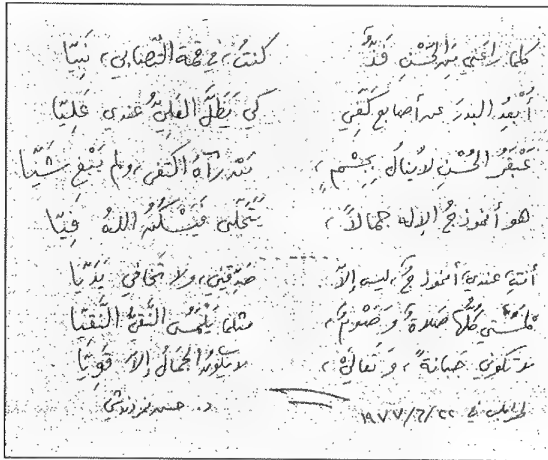 كلما راعني من الحُسْنِ قَدٌّ كنتُ، في قمة التَّصابي، نَبِيّا
أُبْعِدُ البدرَ عن أصابع كَفّي كي يَظَلَّ العَلِيُّ عندي عَلِيّا
عَبْقَرُ الحُسْنِ لا يُنالُ بِجِسْمٍ، مَنْ رآهُ اكتفى، ولم يَبْغِ شَيّا
هو أنموذجُ الإله جمالاً، يَتَجَلّى فَيَسْكُنُ اللهُ فِيّا
أنتِ عندي أنموذجٌ، ليس إلاّ صَدِّقيني، ولا تخافي يَدَيّا
لمْسَتي كُلُّها صلاةٌ وَصَوْمٌ، مثلما يَلْمُسُ التَّقِيُّ التَّقيّا
لا تكوني جبانةً، وَتَعاليْ، لا يكونُ الجمالُ إلاّ قَوِيّا
طرابلس في ١٩٧٧/٦/٢٢ د.